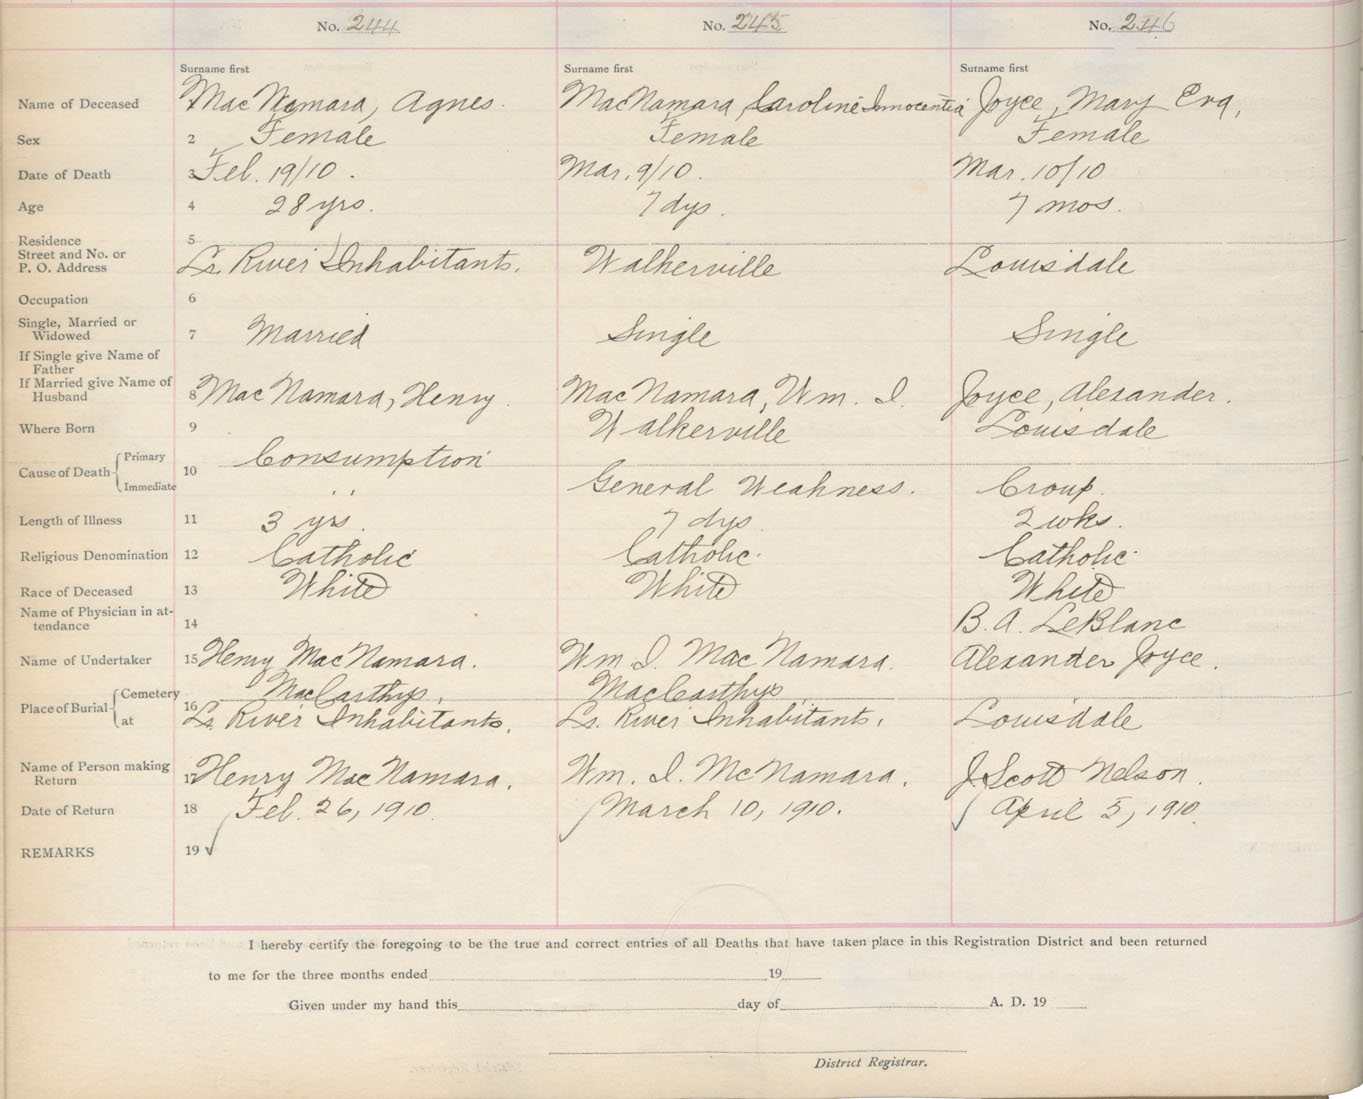 No. 244 No. 245 No. 246
Surname first Surname first Surname first
Name of Deceased MacNamara, Agnes. MacNamara, Caroline Innocentia Joyce, Mary Eva,
Sex 2 Female Female Female
Date of Death 3 Feb. 19/10. Mar. 9/10. Mar. 10/10
Age 4 28 yrs. 7 dys. 7 mos.
Residence 5
Street and No. or
P. O. Address Lr. River Inhabitants. Walkerville Louisdale
Occupation 6
Single, Married or
Widowed 7 Married Single Single
If Single give Name of
Father
If Married give Name of
Husband 8 MacNamara, Henry. MacNamara, Wm. I. Joyce, Alexander.
Where Born 9 Walkerville Louisdale
Cause of Death Primary 10 Consumption
Immediate " General Weakness. Croup.
Length of Illness 11 3 yrs. 7 dys. 2 wks.
Religious Denomination 12 Catholic Catholic. Catholic.
Race of Deceased 13 White White White
Name of Physician in at-
tendance 14 B. A. LeBlanc
Name of Undertaker 15 Henry MacNamara. Wm I. MacNamara. Alexander Joyce.
Place of Burial Cemetery 16 MacCarthys. MacCarthys
at Lr. River Inhabitants. Lr. River Inhabitants. Louisdale
Name of Person making
Return 17 Henry MacNamara. Wm. I. McNamara. J. Scott Nelson.
Date of Return 18 Feb. 26, 1910. March 10, 1910. April 5, 1910.
REMARKS 19
I hereby certify the foregoing to be the true and correct entries of all Deaths that have taken place in this Registration District and been returned
to me for the three months ended 19
Given under my hand this day of A. D. 19
District Registrar.